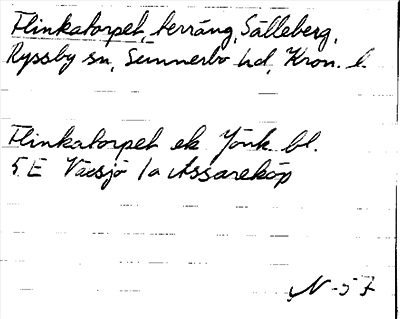 Flinkatorpet, terräng, Sälleberg,
Ryssby sn, Sunnerbo hd, Kron. l.
Flinkatorpet ek Jönk. bl.
5 E Växsjö 1a Assareköp
N-57